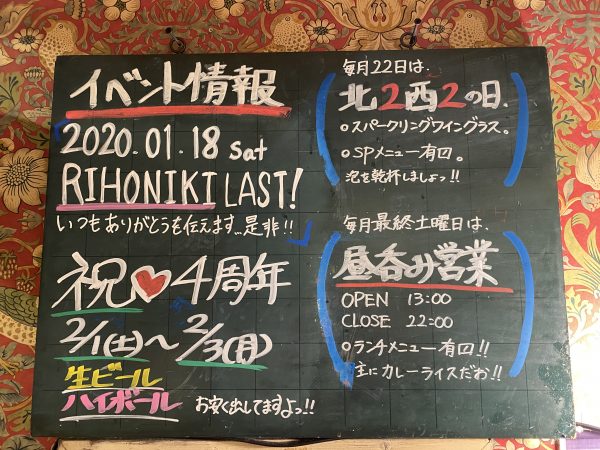 イベント情報
2020.01.18 sat
RIHONIKI LAST!
いつもありがとうを伝えます…是非!!
祝♥4周年
2/1(土)〜2/3(月)
生ビール
ハイボール お安く出してますよっ!!
毎月22日は、
北2西2の日、
○スパークリングワイングラス。
○SPメニュー有□。
泡を乾杯しましょっ!!
毎月最終土曜日は、
昼呑み営業
OPEN 13:00
CLOSE 22:00
○ランチメニュー有□!!
主にカレーライスだお!!